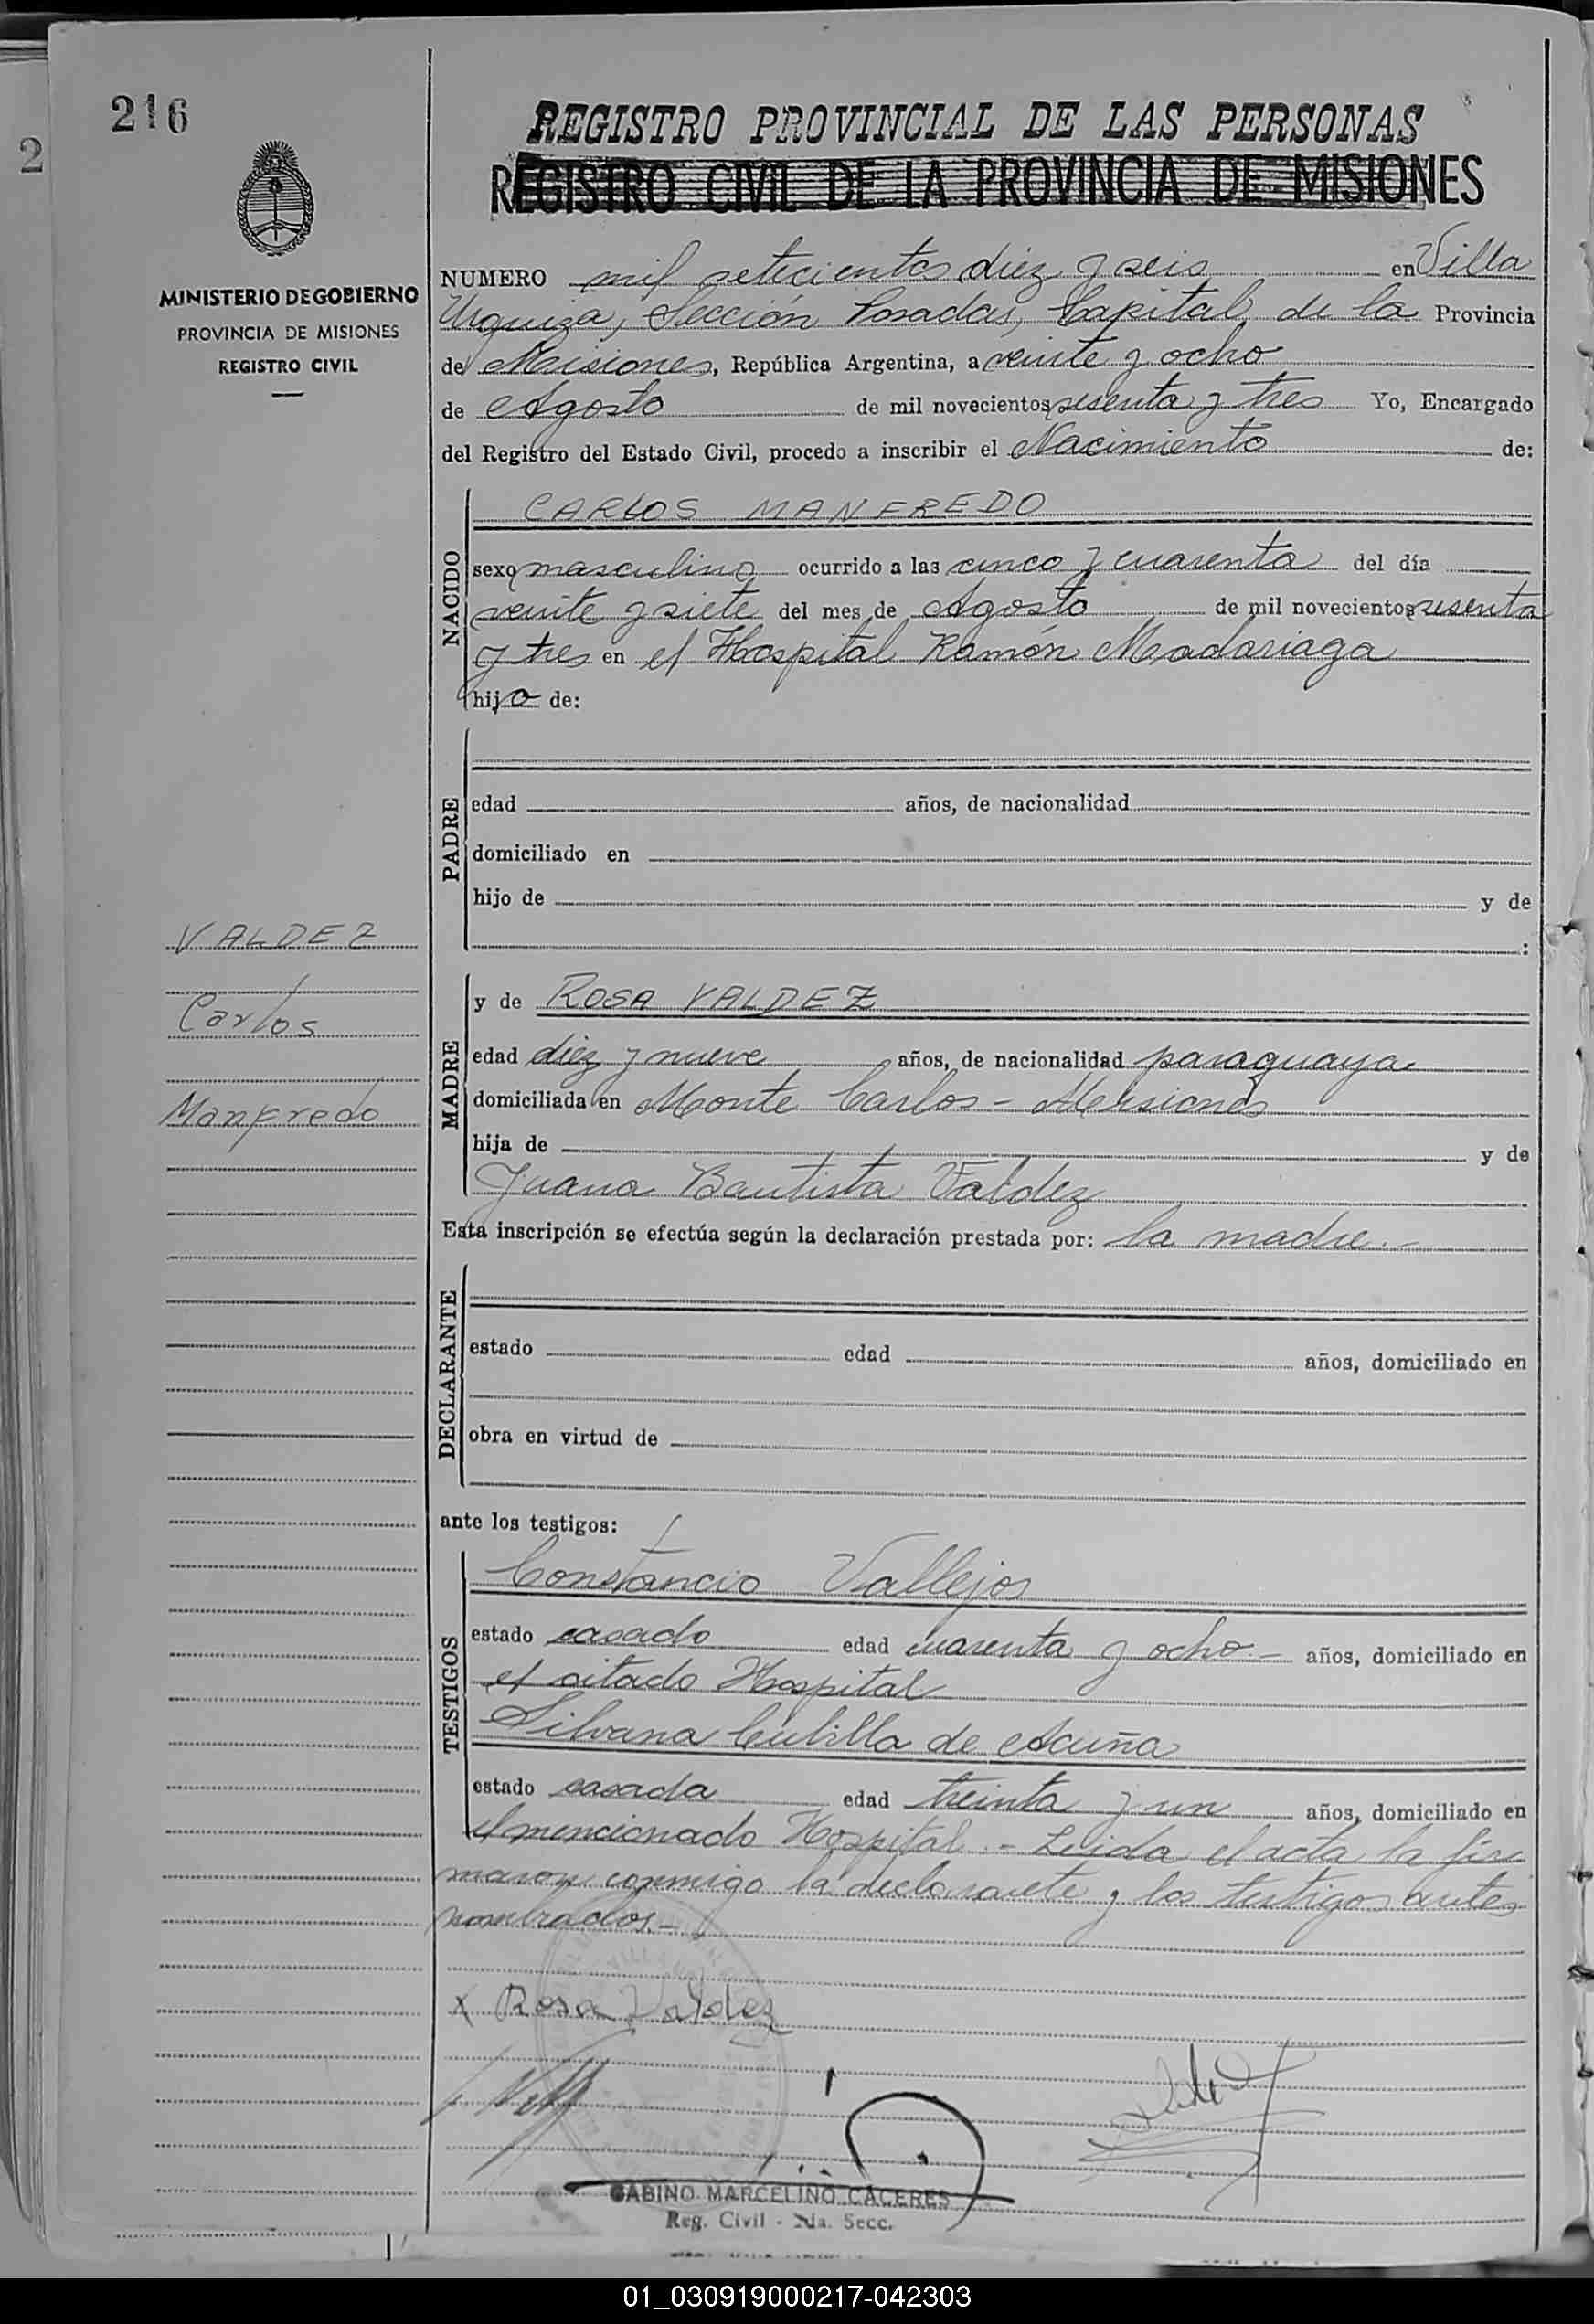 216
2
REGISTRO PROVINCIAL DE LAS PERSONAS
REGISTRO CIVIL DE LA PROVINCIA DE MISIONES
MINISTERIO DE GOBIERNO
PROVINCIA DE MISIONES
REGISTRO CIVIL
NUMERO mil setecientos diez y seis en Villa
Urquiza, Sección Posadas, Capital de la Provincia
de Misiones, República Argentina, a veinte y ocho
de Agosto de mil novecientos sesenta y tres Yo, Encargado
del Registro del Estado Civil, procedo a inscribir el Nacimiento de:
NACIDO
CARLOS MANFREDO
sexo masculino ocurrido a las cinco y cuarenta del día
veinte y siete del mes de Agosto de mil novecientos sesenta
y tres en el Hospital Ramón Madariaga
hijo de:
PADRE
edad años, de nacionalidad
domiciliado en
hijo de y de
:
VALDEZ
Carlos
Manfredo
MADRE
y de ROSA VALDEZ
edad diez y nueve años, de nacionalidad paraguaya
domiciliada en Monte Carlos - Misiones
hija de y de
Juana Bautista Valdez
Esta inscripción se efectúa según la declaración prestada por: la madre.-
DECLARANTE
estado edad años, domiciliado en
obra en virtud de
ante los testigos:
TESTIGOS
Constancio Vallejos
estado casado edad cuarenta y ocho.- años, domiciliado en
el citado Hospital
Silvana Cubilla de Acuña
estado casada edad treinta y un años, domiciliado en
el mencionado Hospital.- Leida el acta la fir
maron conmigo la declarante y los testigos antes
nombrados.-
x Rosa Valdez
GABINO MARCELINO CACERES
Reg. Civil - 2da. Secc.
01_030919000217-042303